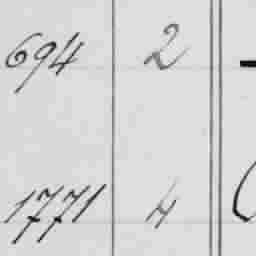 694 2
1771 4